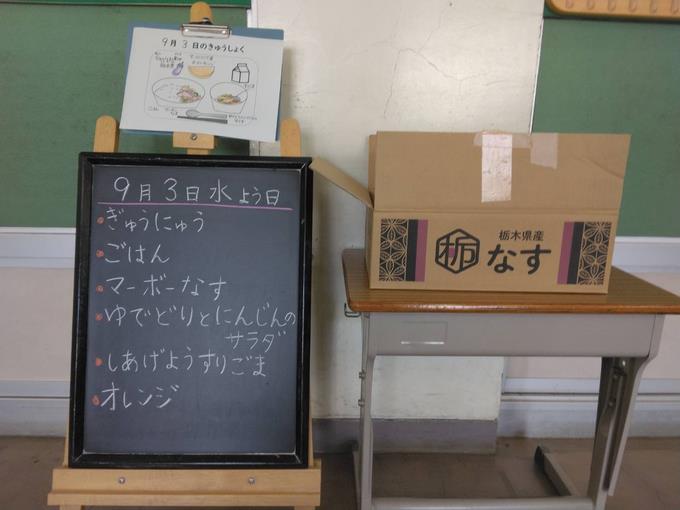 9月3日のきゅうしょく
9月3日水よう日
ぎゅうにゅう
ごはん
マーボーなす
ゆでどりとにんじんの
サラダ
しあげようすりごま
オレンジ
栃木県産
栃
なす